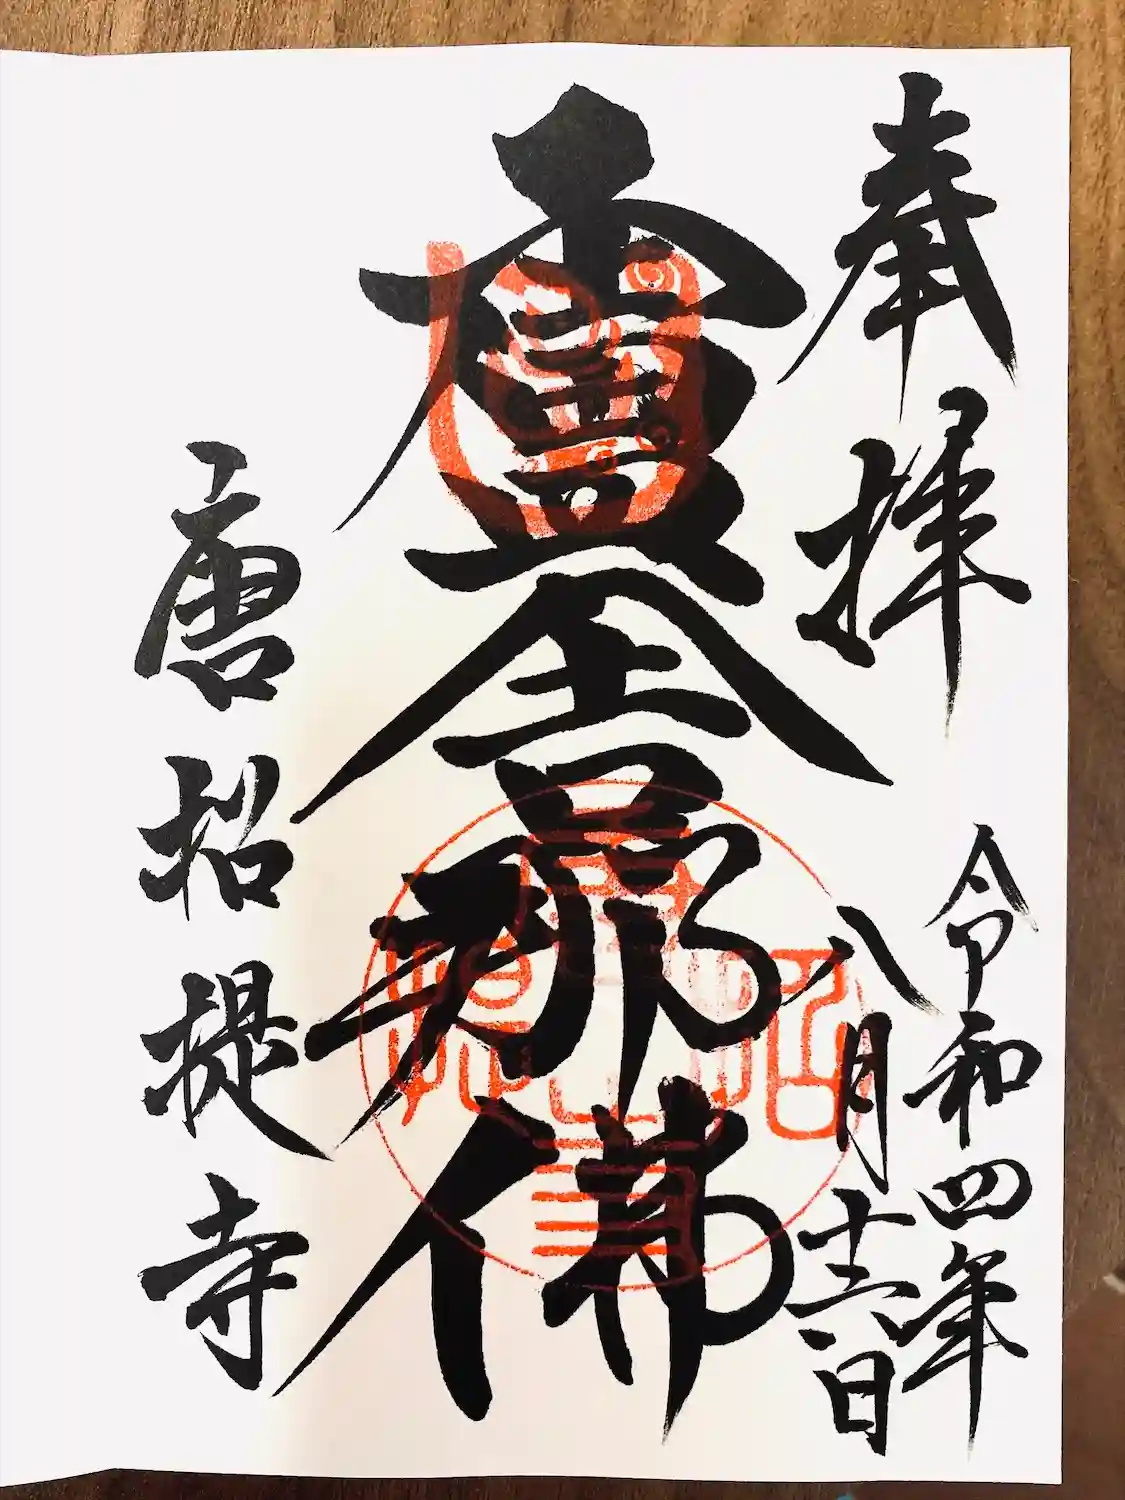 奉拝
令和四年
八月十日
盧舎那佛
唐招提寺
唐招提寺